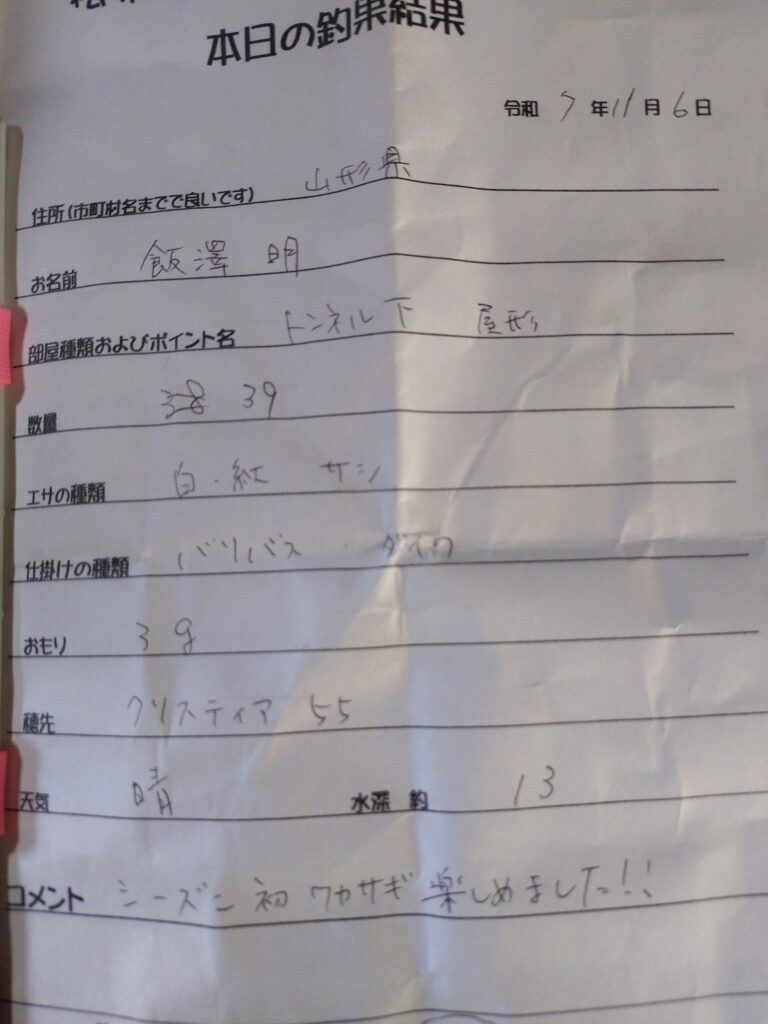 本日の釣果結果
令和 7 年 11 月 6 日
住所(市町村名までで良いです) 山形県
お名前 飯澤 明
部屋種類およびポイント名 トンネル下 屋形
数量 38 39
エサの種類 白・紅 サシ
仕掛けの種類 バリバス・ダイワ
おもり 3g
穂先 クリスティア 55
天気 晴 水深 約 13
コメント シーズン初ワカサギ楽しめました!!